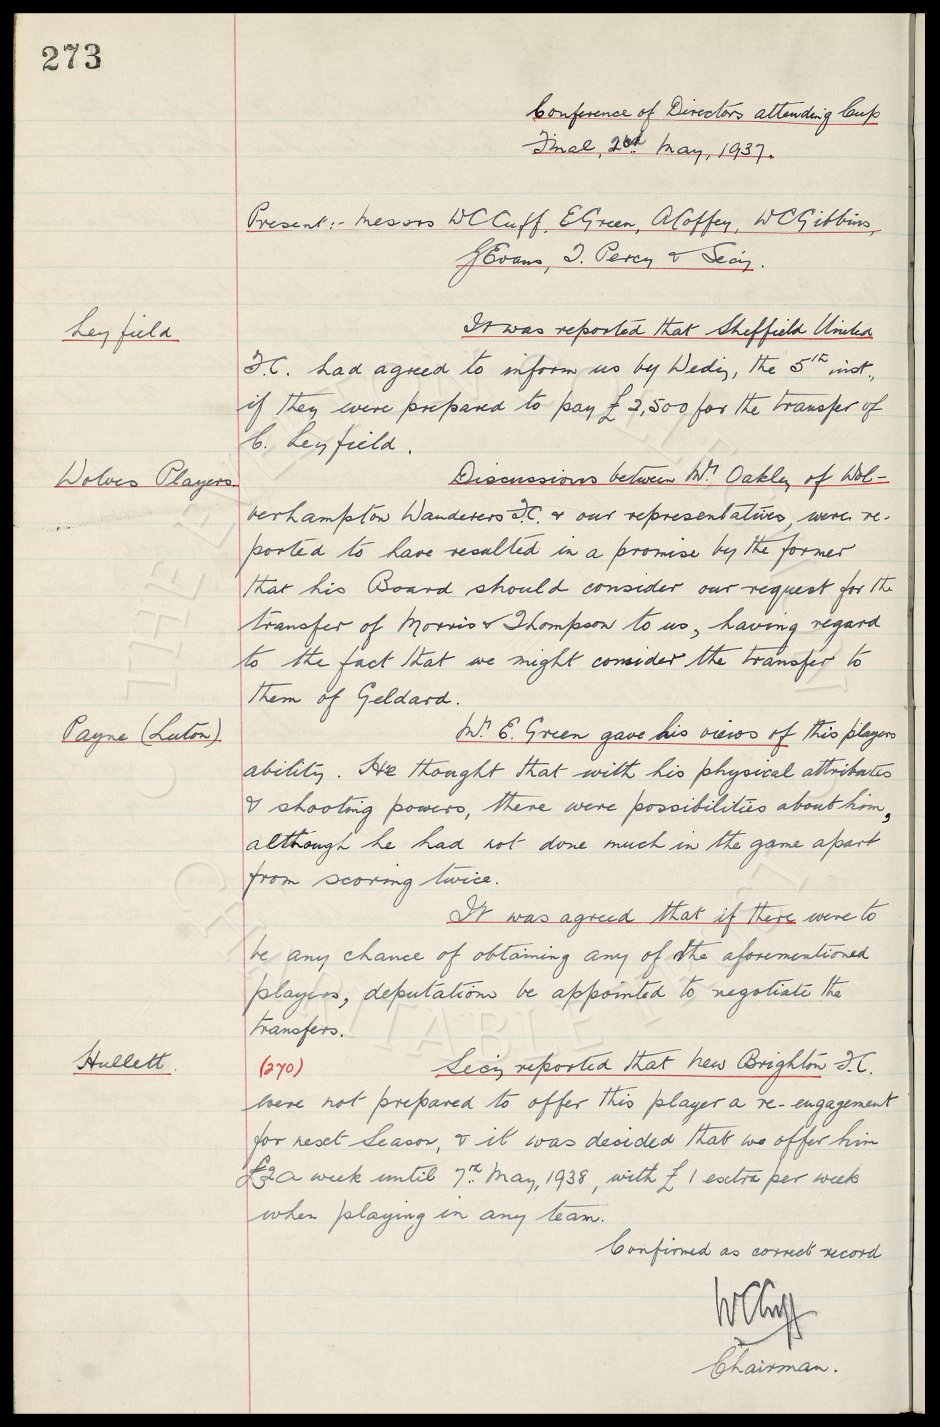 273
Conference of Directors attending Cup
Final, 2nd May, 1937.
Present:- Messrs W C Cuff, E Green, A Coffey, W C Gibbins,
G Evans, T. Percy & Secy.
Leyfield
It was reported that Sheffield United
F.C. had agreed to inform us by Wedy, the 5th inst.,
if they were prepared to pay £2,500 for the transfer of
C. Leyfield.
Wolves Players.
Discussions between Mr. Oakley of Wol-
verhampton Wanderers F.C. & our representatives, were re-
ported to have resulted in a promise by the former
that his Board should consider our request for the
transfer of Morris & Thompson to us, having regard
to the fact that we might consider the transfer to
them of Geldard.
Payne (Luton)
Mr. E. Green gave his views of this players
ability. He thought that with his physical attributes
& shooting powers, there were possibilities about him,
although he had not done much in the game apart
from scoring twice.
It was agreed that if there were to
be any chance of obtaining any of the aforementioned
players, deputations be appointed to negotiate the
transfers.
Hullett.
(270)
Secy reported that New Brighton F.C.
were not prepared to offer this player a re-engagement
for next Season, & it was decided that we offer him
a week until 7th May, 1938, with £1 extra per week
when playing in any team.
Confirmed as correct record
W C Cuff
Chairman.